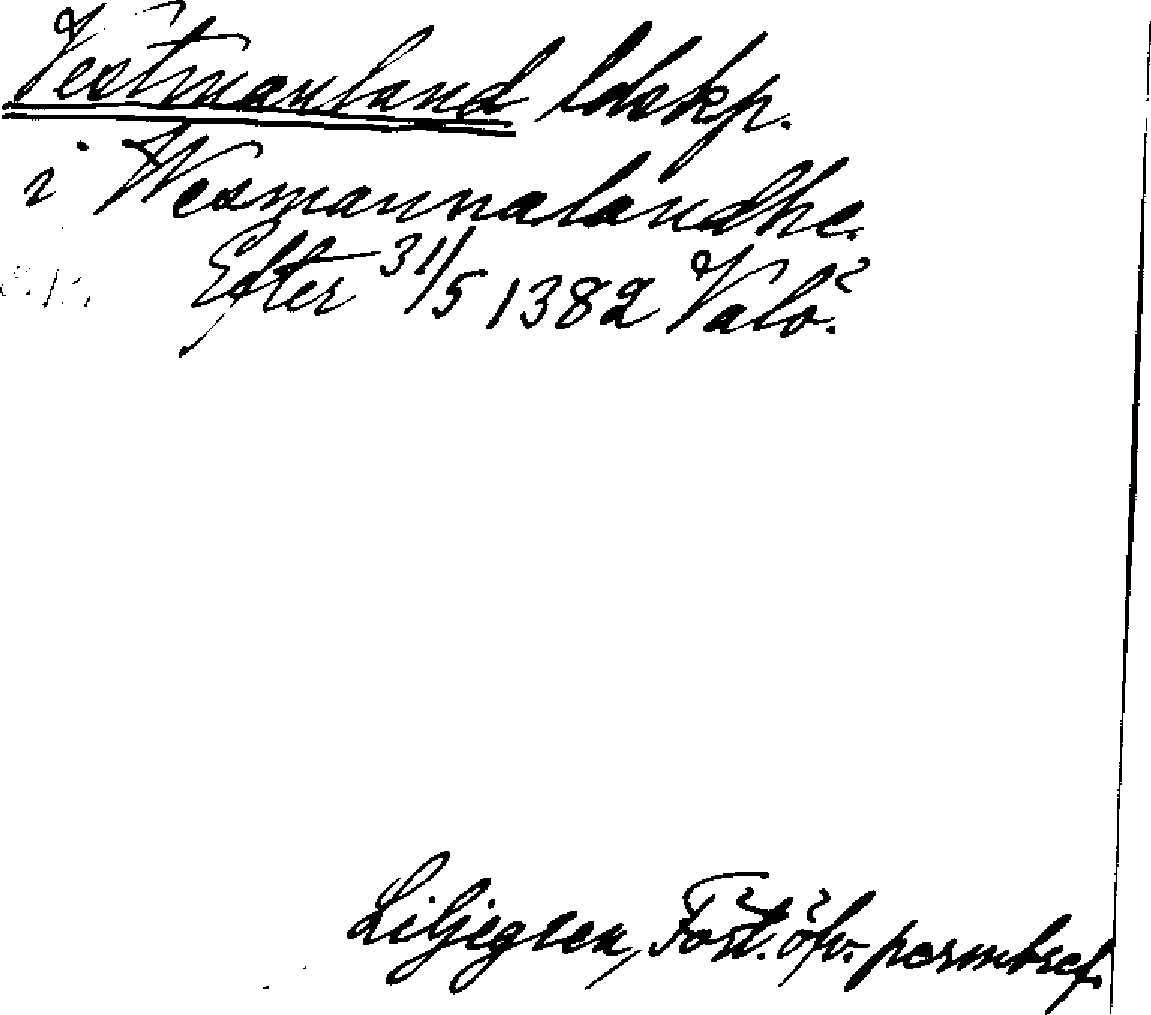 Vestmanland ldskp.
i Wesmannalandhe.
Efter 31/5 1382 Valö.
Liljegren, Fört. öfv. permbref.